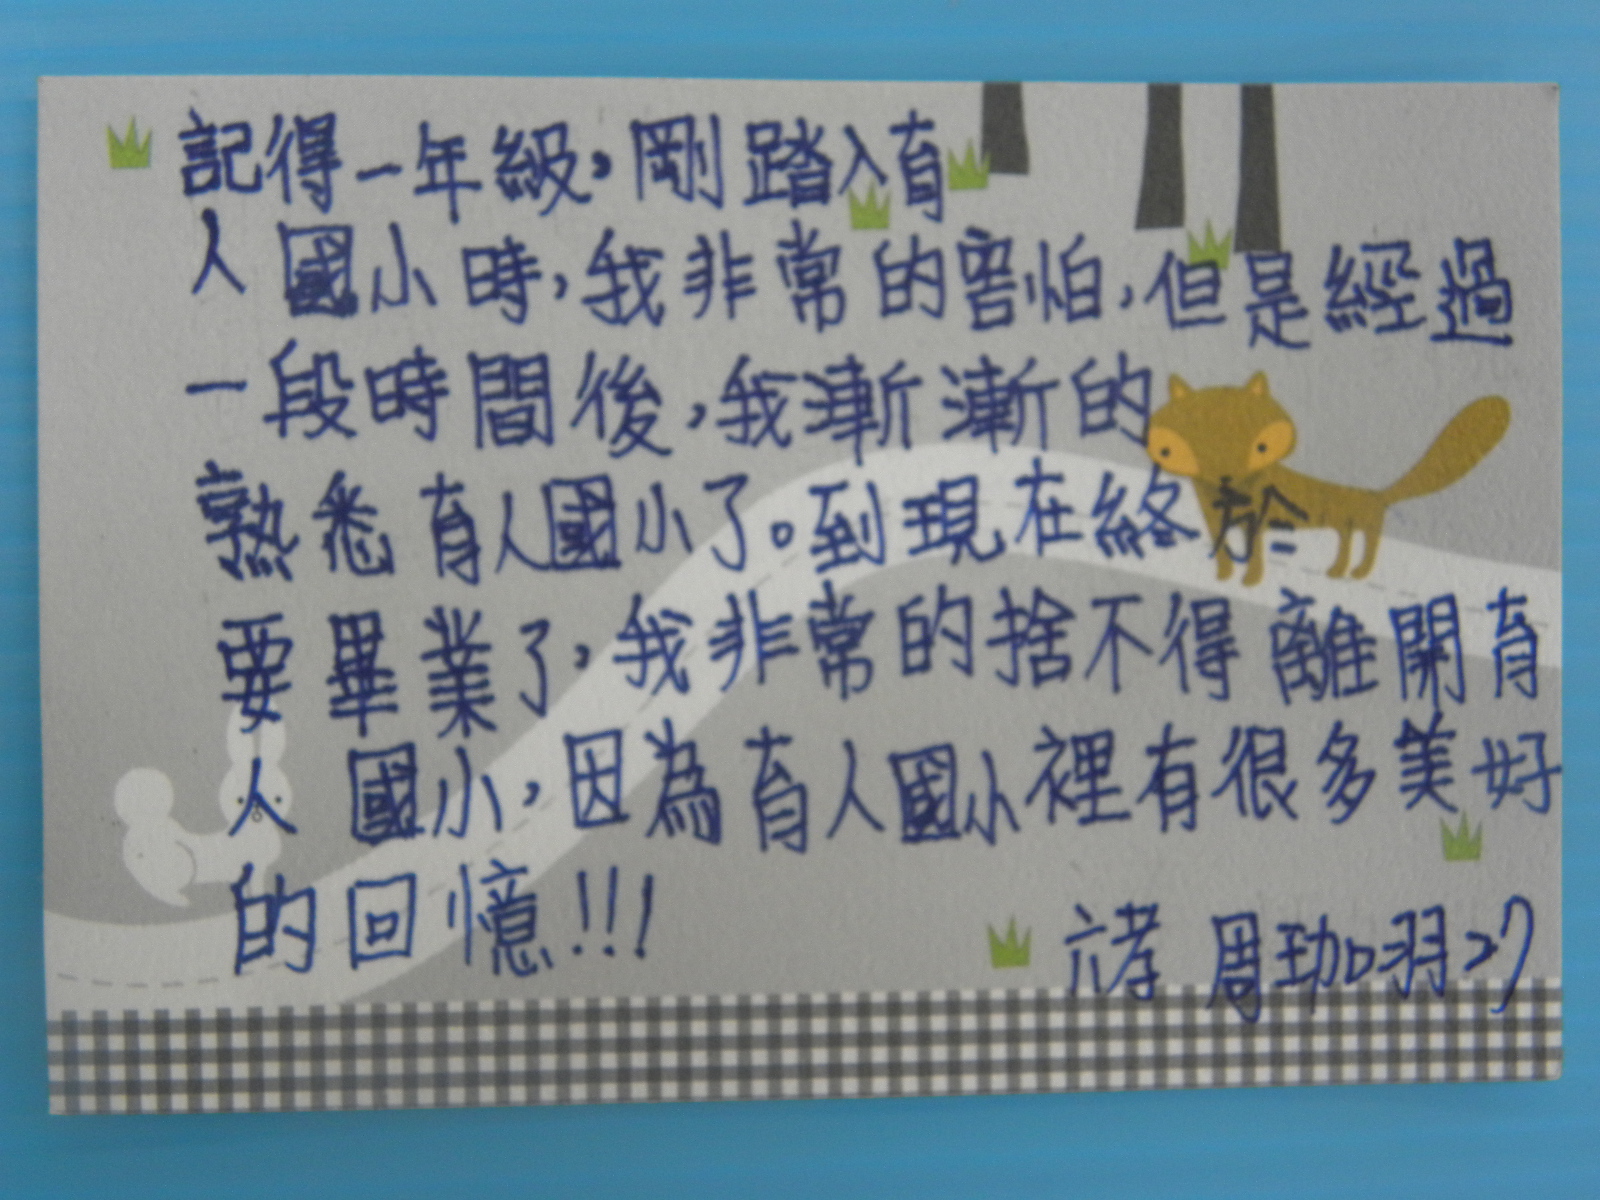 記得一年級，剛踏入育
人國小時，我非常的害怕，但是經過
一段時間後，我漸漸的
熟悉育人國小了。到現在終於
要畢業了，我非常的捨不得離開育
人國小，因為育人國小裡有很多美好
的回憶!!!
六孝 周珈羽27